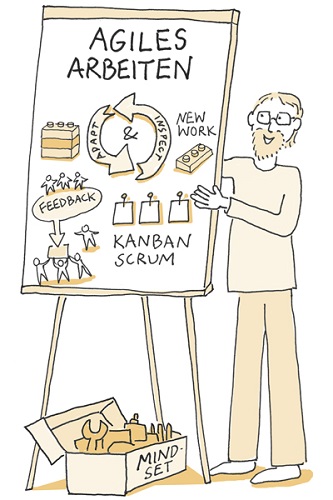 AGILES
ARBEITEN
ADAPT
&
INSPECT
NEW
WORK
FEEDBACK
KANBAN
SCRUM
MIND-
SET